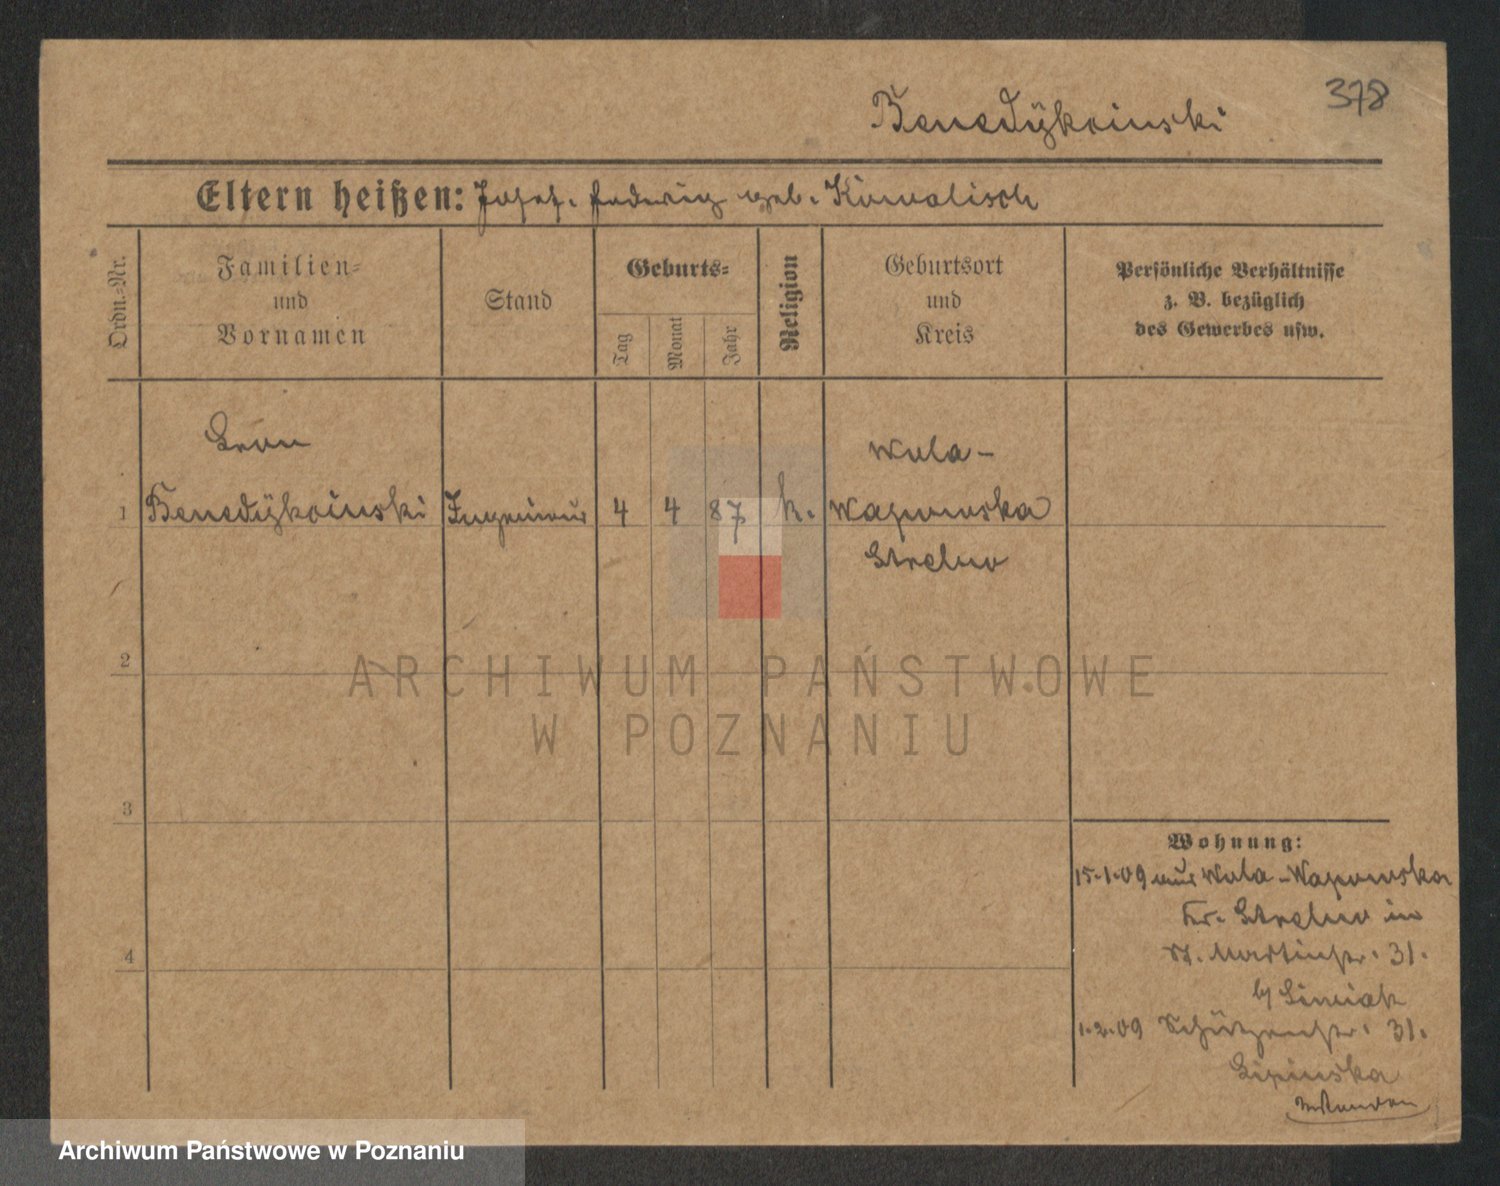 378
Benedÿkcinski
Eltern heißen: Josef. Hedwig geb. Kowalisch
Ordn.-Nr.
Familien-
und
Vornamen
Stand
Geburts-
Tag
Monat
Jahr
Religion
Geburtsort
und
Kreis
Persönliche Verhältnisse
z. B. bezüglich
des Gewerbes usw.
Leon
Wola-
1 Benedÿkcinski Ingenieur 4 4 87 k. Wapowska
Strelno
2
ARCHIWUM PAŃSTWOWE
W POZNANIU
3
Wohnung:
15.1.09 aus Wola-Wapowska
Kr. Strelno in
St. Martinstr. 31.
b/
4
1.2.09 Schützenstr. 31.
Lipinska
Archiwum Państwowe w Poznaniu